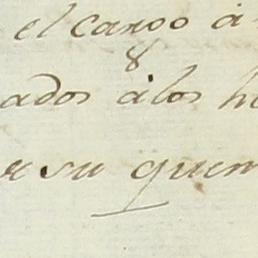 el cargo á
8
ados álos h
su quem